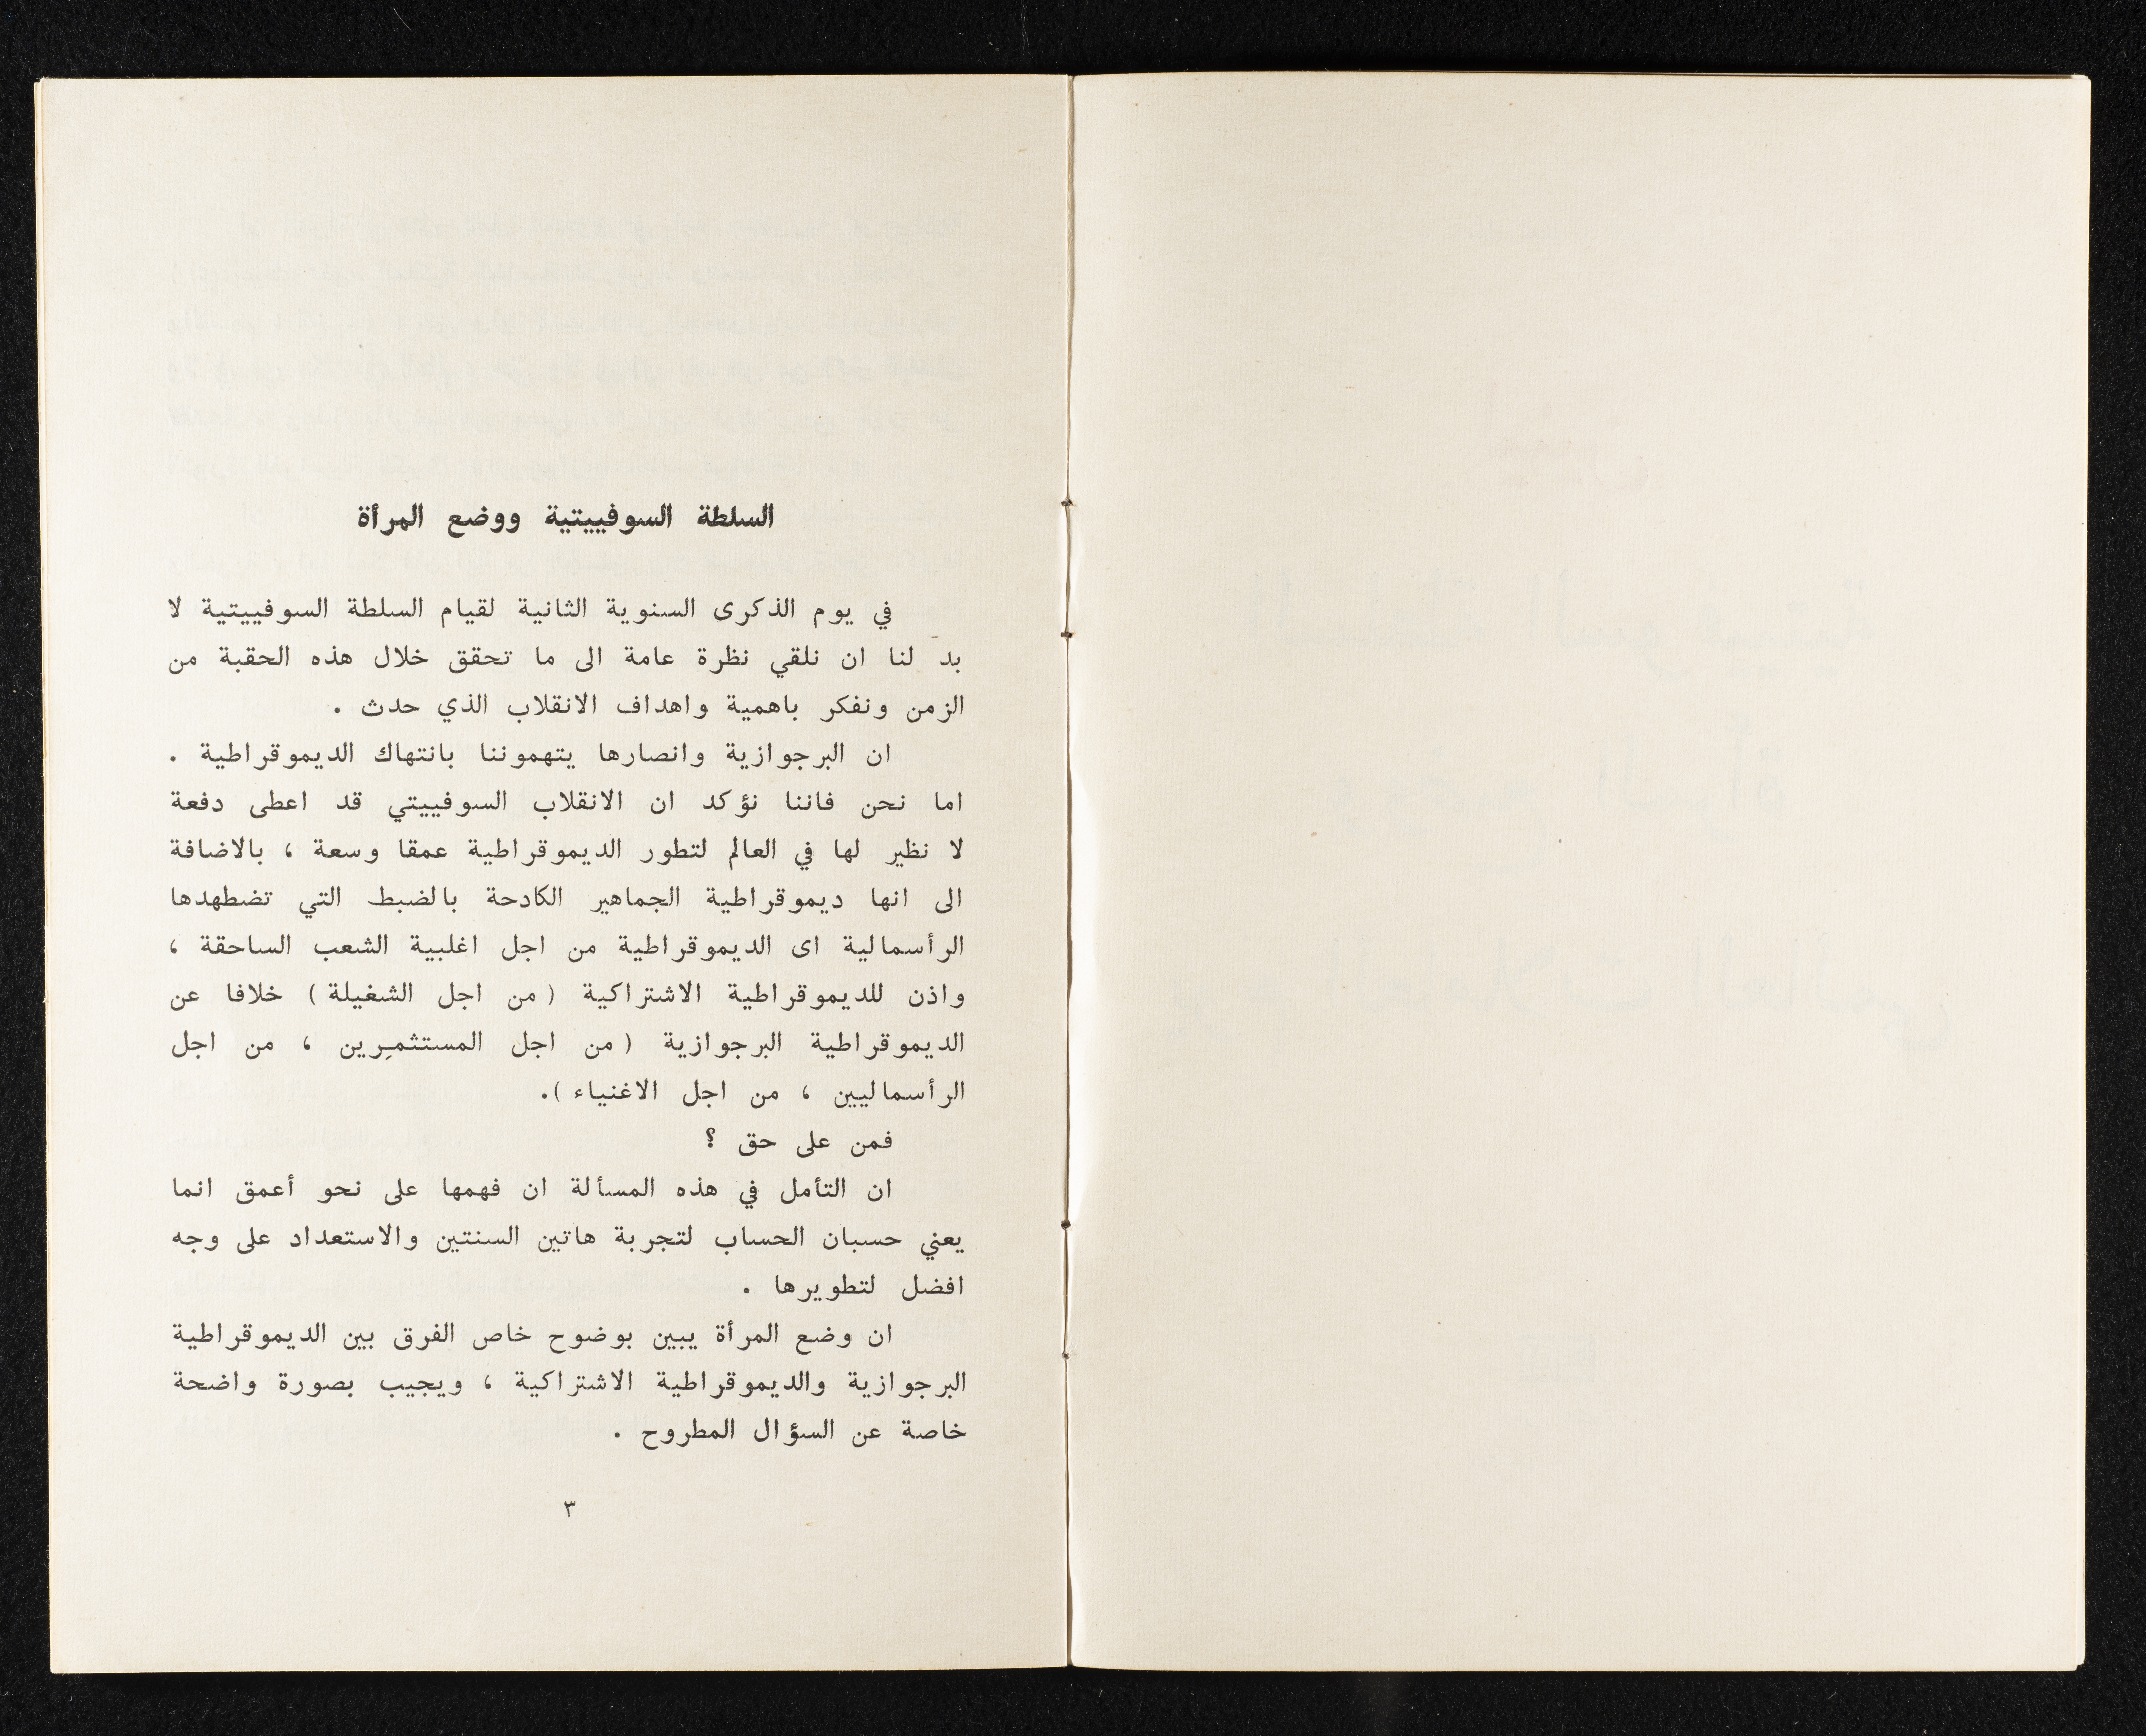 السلطة السوفييتية ووضع المرأة
في يوم الذكرى السنوية الثانية لقيام السلطة السوفييتية لا
بد لنا ان نلقي نظرة عامة الى ما تحقق خلال هذه الحقبة من
الزمن ونفكر باهمية واهداف الانقلاب الذي حدث .
ان البرجوازية وانصارها يتهموننا بانتهاك الديموقراطية .
اما نحن فاننا نؤكد ان الانقلاب السوفييتي قد اعطى دفعة
لا نظير لها في العالم لتطور الديموقراطية عمقا وسعة ، بالاضافة
الى انها ديموقراطية الجماهير الكادحة بالضبط التي تضطهدها
الرأسمالية اى الديموقراطية من اجل اغلبية الشعب الساحقة ،
واذن للديموقراطية الاشتراكية ( من اجل الشغيلة ) خلافا عن
الديموقراطية البرجوازية ( من اجل المستثمِرين ، من اجل
الرأسماليين ، من اجل الاغنياء ).
فمن على حق ؟
ان التأمل في هذه المسألة ان فهمها على نحو أعمق انما
يعني حسبان الحساب لتجربة هاتين السنتين والاستعداد على وجه
افضل لتطويرها .
ان وضع المرأة يبين بوضوح خاص الفرق بين الديموقراطية
البرجوازية والديموقراطية الاشتراكية ، ويجيب بصورة واضحة
خاصة عن السؤال المطروح .
٣